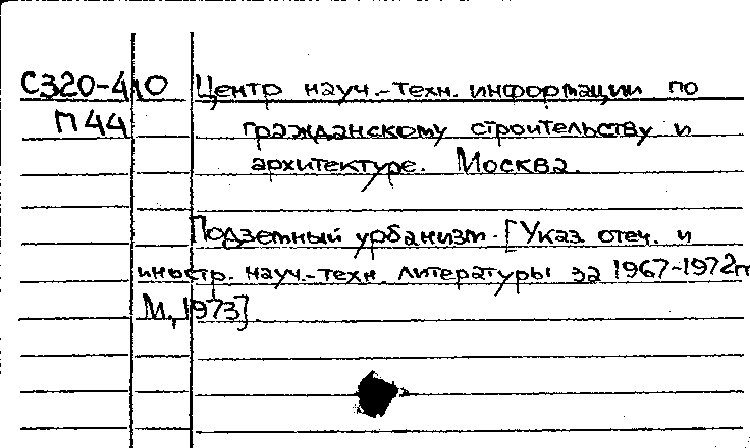 С320-410 Центр науч.-техн. информации по
П44 гражданскому строительству и
архитектуре. Москва.
Подземный урбанизм. [Указ. отеч. и
иностр. науч.-техн. литературы за 1967-1972гг
М., 1973].